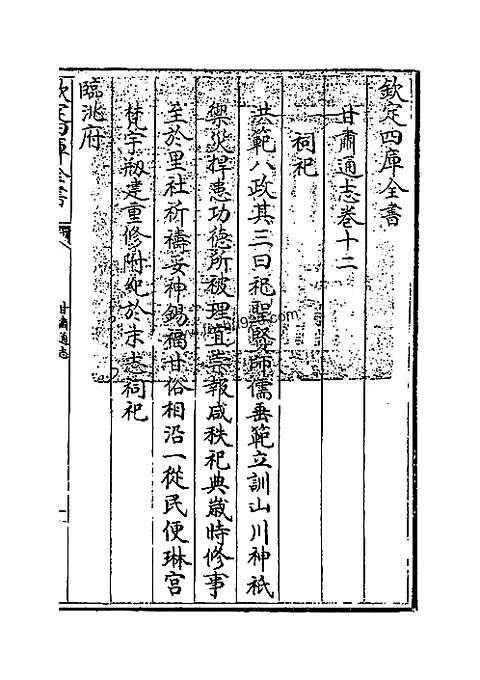 欽定四庫全書
甘肅通志卷十二
祠祀
洪範八政其三曰祀聖賢師儒垂範立訓山川神祇
禦災捍患功德所被理宜崇報咸秩祀典歲時修事
至於里社祈禱妥神錫福甘俗相沿一從民便琳宫
梵宇剏建重修附紀於末志祠祀
臨洮府
欽定四庫全書
甘肅通志